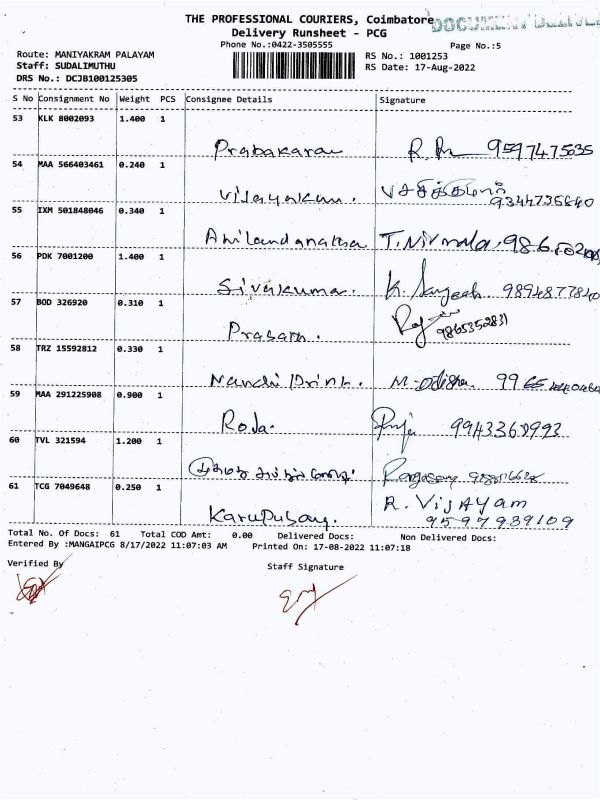 THE PROFESSIONAL COURIERS, Coimbatore
DOCUMENT DELIVE
Delivery Runsheet - PCG
Phone No.:0422-3505555
Page No.:5
Route: MANIYAKRAM PALAYAM
RS No.: 1001253
Staff: SUDALIMUTHU
RS Date: 17-Aug-2022
DRS No.: DCJB100125305
S No Consignment No Weight PCS Consignee Details Signature
53 KLK 8002093 1.400 1
Prabakaran R. 9597475035
54 MAA 566403461 0.240 1
Vijayakum. 9344735640
55 IXM 501848046 0.340 1
Akilandanatha T. Nirmala
56 PDK 7001200 1.400 1
Sivakumar. K. Sangeeth 9894877840
57 BOD 326920 0.310 1
Prasath. 9865352831
58 TRZ 15592812 0.330 1
Nandhi Drink.
59 MAA 291225908 0.900 1
Roja. 9943368993
60 TVL 321594 1.200 1
61 TCG 7049648 0.250 1
Karupusay. R. VIJAYAM
9597939109
Total No. Of Docs: 61 Total COD Amt: 0.00 Delivered Docs: Non Delivered Docs:
Entered By :MANGAIPCG 8/17/2022 11:07:03 AM Printed On: 17-08-2022 11:07:18
Verified By
Staff Signature